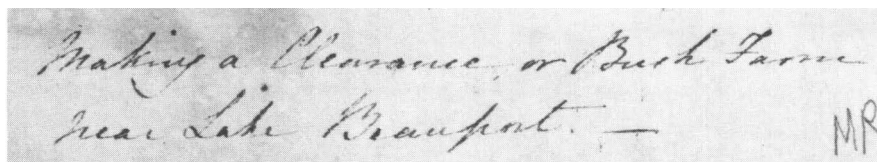 Making a Clearance, or Bush Farm
near Lake Beauport. —
MR